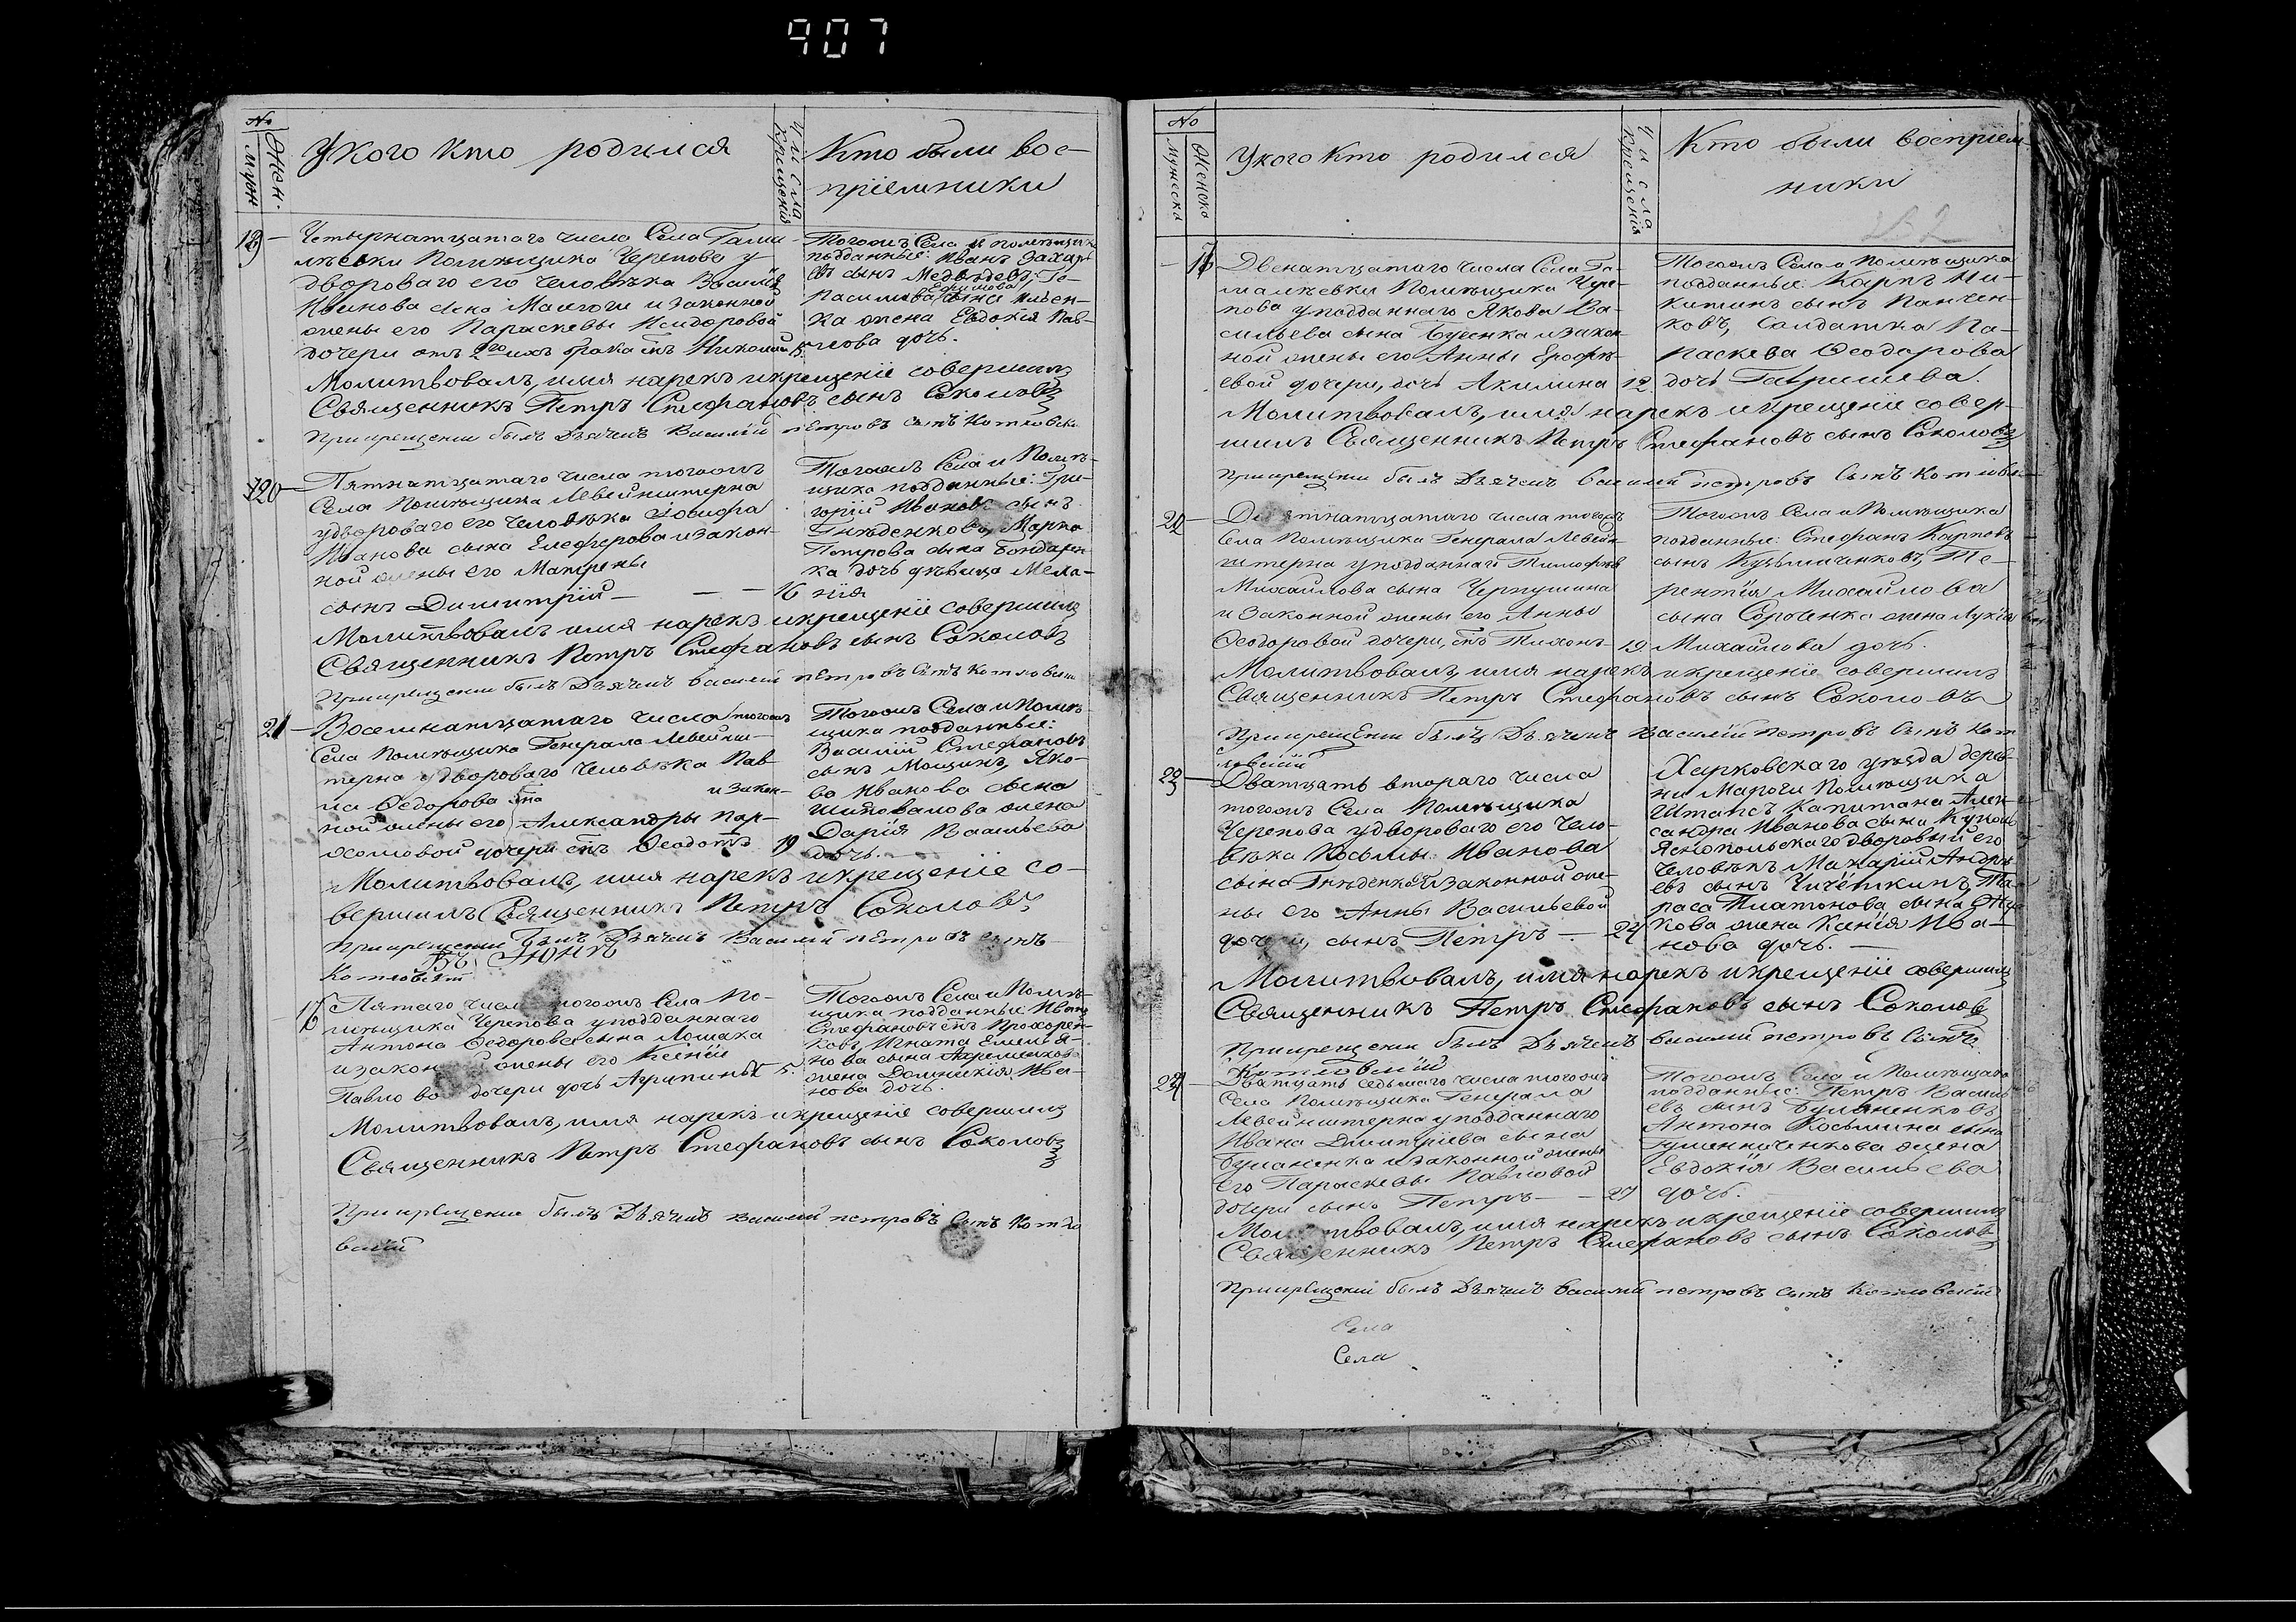 907
№
Муж
Жен.
У кого кто родился
Числа Крещенія
Кто были вос-
пріемники
19
Четырнатцатаго числа Села Гами-
лѣевки Помѣщика Черепова у
двороваго его человѣка Василія
Иванова сына и законной
жены его Параскевы Исидоровой
дочери отъ 2го ихъ брака снъ Николай
Тогожъ Села и помѣщика
подданные: Иванъ Захарь
евъ сынъ Медведевъ, Ге-
расима Ефимова сына
жена Евдокія Пав-
лова дочь.
Молитвовалъ, имя нарекъ и крещеніе совершилъ
Священникъ Петръ Стефановъ сынъ Соколовъ
При крещеніи былъ Дьячекъ Василій Петровъ сынъ Котлевскій
20
Пятнатцатаго числа тогожъ
Села Помѣщика Левенштерна
у двороваго его человѣка Іосифа
Иванова сына Елеферова и закон-
ной жены его Матрены
сынъ Димитрій — — — 16
Тогожъ Села и Помѣ-
щика подданные: Гри-
горій Ивановъ сынъ
Гнѣденковъ, Марка
Петрова сына Бондарен-
ка дочь дѣвица Мела-
нія
Молитвовалъ имя нарекъ и крещеніе совершилъ
Священникъ Петръ Стефановъ сынъ Соколовъ
При крещеніи былъ Дьячекъ Василій Петровъ сынъ Котлевскій
21
Восемнатцатаго числа тогожъ
Села Помѣщика Генерала Левенш-
терна у двороваго человѣка Пав-
ла Федорова сна и закон-
ной жены его Александры Пар-
ѳеоновой дочери снъ Ѳеодотъ 19
Тогожъ Села и Помѣ-
щика подданные:
Василій Стефановъ
сынъ Мощинъ, Яко-
ва Иванова сына
Шаповалова жена
Дарія Васильева
дочь.
Молитвовалъ, имя нарекъ и крещеніе со-
вершилъ Священникъ Петръ Соколовъ
При крещеніи былъ Дьячекъ Василій Петровъ сынъ
Котлевскій
Въ Іюнѣ
16
Пятаго числа тогожъ Села По-
мѣщика Черепова у подданнаго
Антона Ѳедорова сына Лошака
и законной жены его Ксеніи
Павловой дочери дочь Агрипина 5.
Тогожъ Села и Помѣ-
щика подданные: Иванъ
Стефановъ снъ Прохорен-
ковъ, Игната Емелья-
нова сына
жена Домникія Ива-
нова дочь.
Молитвовалъ, имя нарекъ и крещеніе совершилъ
Священникъ Петръ Стефановъ сынъ Соколовъ
При крещеніи былъ Дьячекъ Василій Петровъ сынъ Котле
вскій
№
Мужеска
Женска
У кого кто родился
Числа Крещенія
Кто были воспріем-
ники
17
Двенатцатаго числа Села Га-
малѣевки Помѣщика Чере-
пова у подданнаго Якова Ва-
сильева сына и закон-
ной жены его Анны Ерофѣ-
евой дочери, дочь Акилина 12
Тогожъ Села и Помѣщика
подданные: Карпъ Ни-
китинъ сынъ Панчен-
ковъ, Солдатка Па-
раскева Ѳеодорова
дочь Гаврищева.
Молитвовалъ, имя нарекъ и крещеніе совер-
шилъ Священникъ Петръ Стефановъ сынъ Соколовъ
При крещеніи былъ Дьячекъ Василій Петровъ сынъ Котлевскій
22
Девятнатцатаго числа тогожъ
Села Помѣщика Генерала Левен-
штерна у подданнаго Тимофѣя
Михайлова сына Черпушина
и законной жены его Анны
Ѳеодоровой дочери, снъ Тихонъ 19
Тогожъ Села и Помѣщика
подданные: Стефанъ Карповъ
сынъ Кузьминченковъ, Те-
рентія Михайлова
сына жена Лукія
Михайлова дочь.
Молитвовалъ, имя нарекъ и крещеніе совершилъ
Священникъ Петръ Стефановъ сынъ Соколовъ
При крещеніи былъ Дьячекъ Василій Петровъ сынъ Кот
левскій
23
Дватцать втораго числа
тогожъ Села Помѣщика
Черепова у двороваго его чело-
вѣка Косьмы Иванова
сына Гнѣденкова и законной же-
ны его Анны Васильевой
дочери, сынъ Петръ — 24
Харковскаго уѣзда дерев-
ни Помѣщика
Штапсъ Капитана Алек-
сандра Иванова сына
Яснопольскаго дворовый его
человѣкъ Макарій Андре-
евъ сынъ Чичёткинъ, Та-
раса Платонова сына
жена Ксенія Ива-
нова дочь. —
Молитвовалъ, имя нарекъ и крещеніе совершилъ
Священникъ Петръ Стефановъ сынъ Соколовъ
При крещеніи былъ Дьячекъ Василій Петровъ сынъ
Котлевскій
24
Дватцать седьмаго числа тогожъ
Села Помѣщика Генерала
Левенштерна у подданнаго
Ивана Димитріева сына
Буланенка и законной жены
его Параскевы Павловой
дочери сынъ Петръ — 27
Тогожъ Села и Помѣщика
подданные: Петръ Василь
евъ сынъ Буланенковъ
Антона Косьмина сына
жена
Евдокія Васильева
дочь.
Молитвовалъ, имя нарекъ и крещеніе совершилъ
Священникъ Петръ Стефановъ сынъ Соколовъ
При крещеніи былъ Дьячекъ Василій Петровъ сынъ Котлевскій
Села
Села